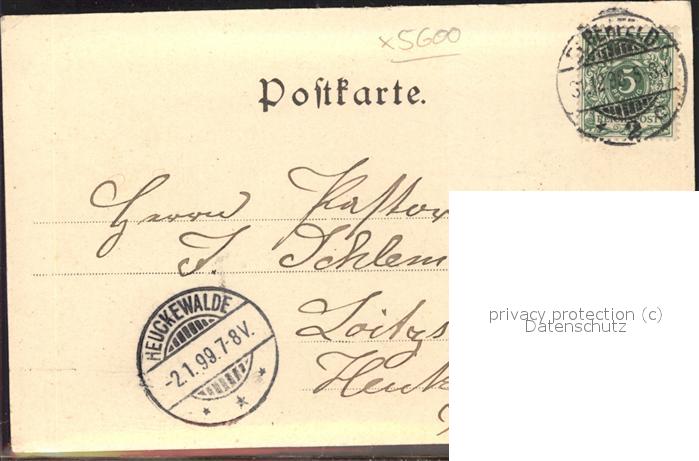 x5600
ELBERFELD
5
REICHSPOST
2 c
Postkarte.
Herrn Pastor
J. Schlem
Loitzs
Heuk
HEUCKEWALDE
-2.1.99.7-8V.
privacy protection (c)
Datenschutz